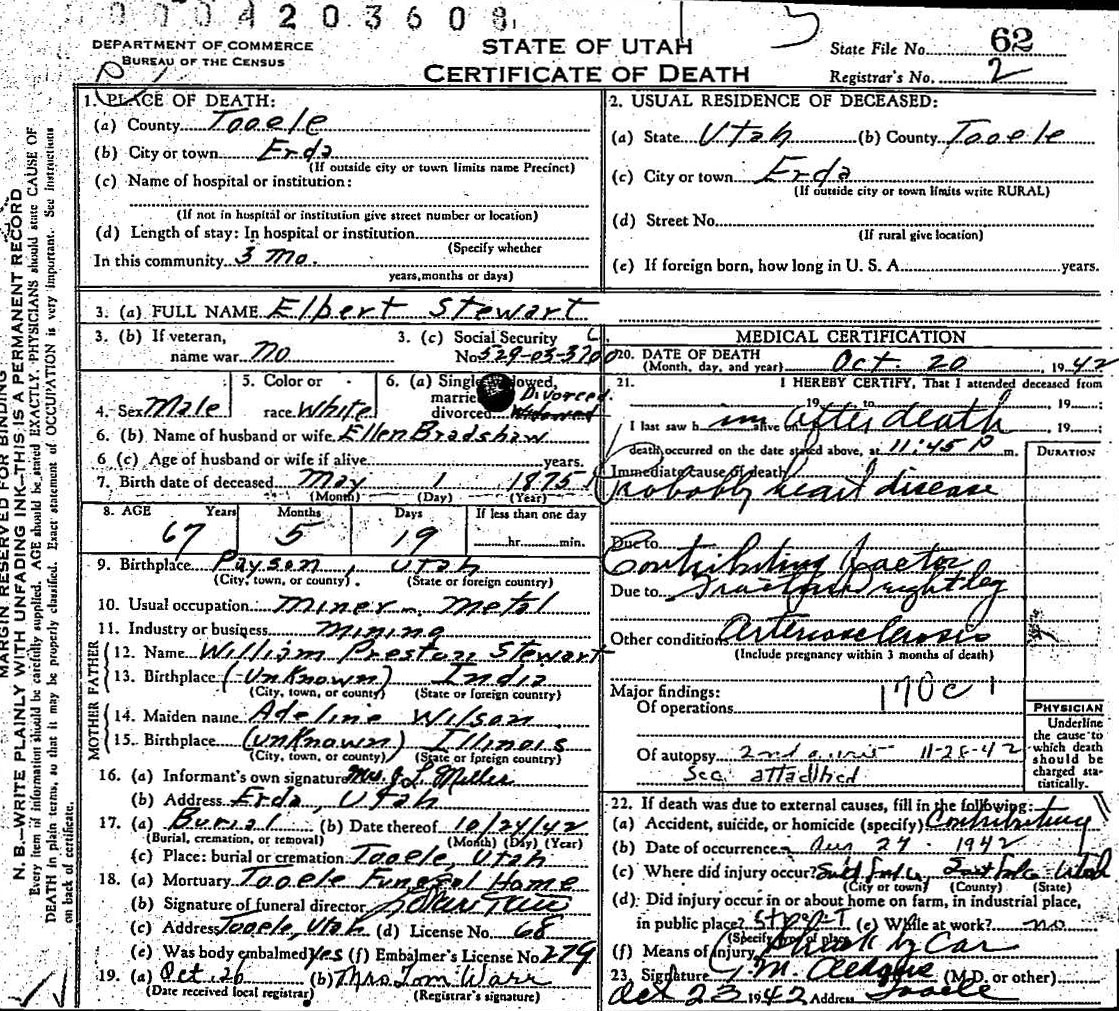 0004203608
DEPARTMENT OF COMMERCE
BUREAU OF THE CENSUS
STATE OF UTAH
CERTIFICATE OF DEATH
State File No. 62
Registrar's No. 2
MARGIN RESERVED FOR BINDING
N. B.—WRITE PLAINLY WITH UNFADING INK—THIS IS A PERMANENT RECORD
Every item of information should be carefully supplied. AGE should be stated EXACTLY. PHYSICIANS should state CAUSE OF
DEATH in plain terms, so that it may be properly classified. Exact statement of OCCUPATION is very important. See instructions
on back of certificate.
1. PLACE OF DEATH:
(a) County Tooele
(b) City or town Erda
(If outside city or town limits name Precinct)
(c) Name of hospital or institution:
(If not in hospital or institution give street number or location)
(d) Length of stay: In hospital or institution
(Specify whether
In this community 3 Mo.
years, months or days)
2. USUAL RESIDENCE OF DECEASED:
(a) State Utah (b) County Tooele
(c) City or town Erda
(If outside city or town limits write RURAL)
(d) Street No.
(If rural give location)
(e) If foreign born, how long in U. S. A. years.
3. (a) FULL NAME Elbert Stewart
3. (b) If veteran, name war no
3. (c) Social Security No. 529-03-3700
4. Sex Male
5. Color or race White
6. (a) Single, widowed, married, divorced Widowed Divorced
6. (b) Name of husband or wife Ellen Bradshaw
6 (c) Age of husband or wife if alive years.
7. Birth date of deceased May 1 1875
(Month) (Day) (Year)
8. AGE Years Months Days If less than one day
67 5 19 hr. min.
9. Birthplace Payson, Utah
(City, town, or county) (State or foreign country)
10. Usual occupation Miner - Metal
11. Industry or business Mining
FATHER
12. Name William Preston Stewart
13. Birthplace (unknown) India
(City, town, or county) (State or foreign country)
MOTHER
14. Maiden name Adeline Wilson
15. Birthplace (unknown) Illinois
(City, town, or county) (State or foreign country)
16. (a) Informant's own signature Mrs. J. L. Miller
(b) Address Erda, Utah
17. (a) Burial (b) Date thereof 10/24/42
(Burial, cremation, or removal) (Month) (Day) (Year)
(c) Place: burial or cremation Tooele, Utah
18. (a) Mortuary Tooele Funeral Home
(b) Signature of funeral director
(c) Address Tooele, Utah (d) License No. 68
(e) Was body embalmed Yes (f) Embalmer's License No. 279
19. (a) Oct. 26 (b) Mrs Tom Warr
(Date received local registrar) (Registrar's signature)
MEDICAL CERTIFICATION
20. DATE OF DEATH
(Month, day, and year) Oct. 20, 1942
21. I HEREBY CERTIFY, That I attended deceased from
19 to , 19 ;
I last saw h im alive on After death , 19 ;
death occurred on the date stated above, at 11:45 P m.
DURATION
Immediate cause of death
Probably heart disease
Due to
Contributing factor
Due to Fracture right leg
Other conditions Arteriosclerosis
(Include pregnancy within 3 months of death)
Major findings:
Of operations
170c 1
PHYSICIAN
Underline
the cause to
which death
should be
charged sta-
tistically.
Of autopsy 2nd 11-28-42
Sec. attadlhed
22. If death was due to external causes, fill in the following:
(a) Accident, suicide, or homicide (specify) Contributing
(b) Date of occurrence Aug 27 - 1942
(c) Where did injury occur? Salt Lake Salt Lake Utah
(City or town) (County) (State)
(d) Did injury occur in or about home on farm, in industrial place,
in public place? Street (e) While at work? no
(Specify type of place)
(f) Means of injury Struck by Car
23. Signature J. M. (M.D. or other)
Oct 23 1942 Address Tooele